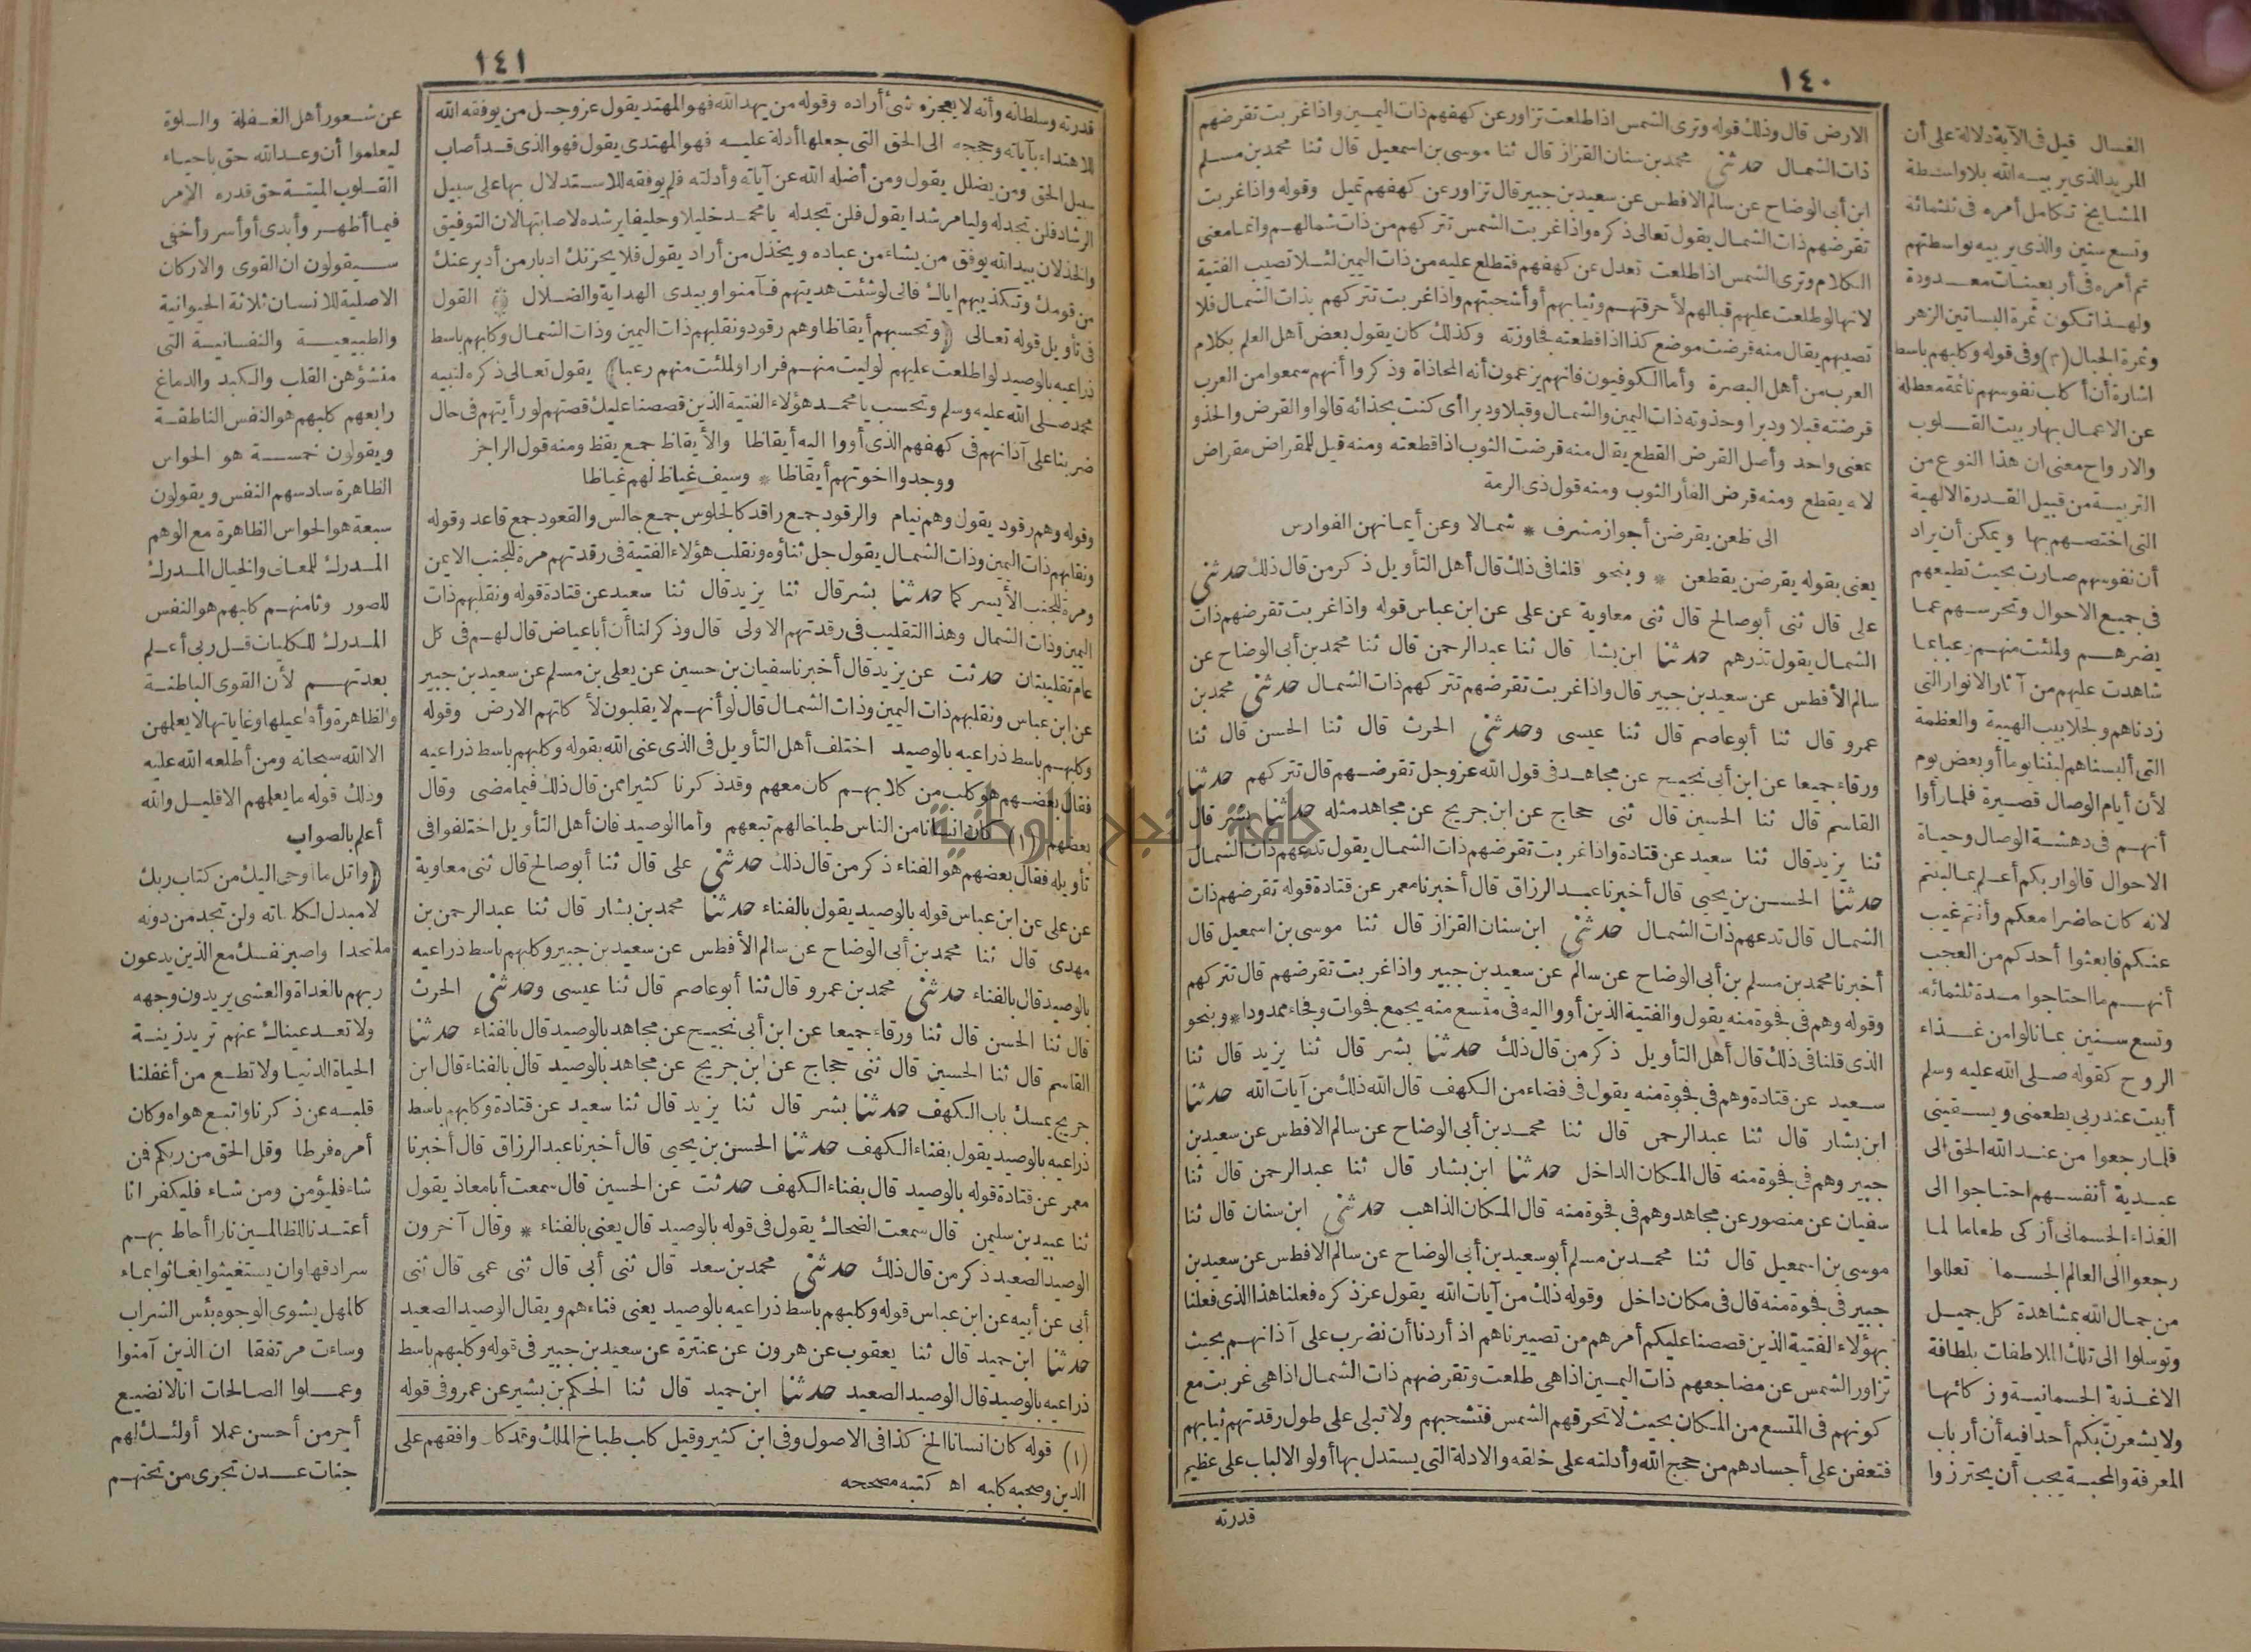 ١٤٠
الارض قال وذلك قوله وترى الشمس اذا طلعت تزاور عن كهفهم ذات اليمين واذا غربت تقرضهم
ذات الشمال حدثني محمد بن سنان القزاز قال ثنا موسى بن اسمعيل قال ثنا محمد بن مسلم
ابن أبى الوضاح عن سالم الافطس عن سعيد بن جبير قال تزاور عن كهفهم تميل وقوله واذا غربت
تقرضهم ذات الشمال يقول تعالى ذكره واذا غربت الشمس تتركهم من ذات شمالهم وانما معنى
الكلام وترى الشمس اذا طلعت تعدل عن كهفهم فتطلع عليه من ذات اليمين لئلا تصيب الفتية
لانها لو طلعت عليهم قبالهم لأحرقتهم وثيابهم أو أشحبتهم واذا غربت تتركهم بذات الشمال فلا
تصيبهم يقال منه قرضت موضع كذا اذا قطعته فجاوزته وكذلك كان يقول بعض أهل العلم بكلام
العرب من أهل البصرة وأما الكوفيون فانهم يزعمون أنه المحاذاة وذكروا أنهم سمعوا من العرب
قرضته قبلا ودبرا وحذوته ذات اليمين والشمال وقبلا ودبرا أى كنت بحذائه قالوا والقرض والحذو
بمعنى واحد وأصل القرض القطع يقال منه قرضت الثوب اذا قطعته ومنه قيل للمقراض مقراض
لانه يقطع ومنه قرض الفأر الثوب ومنه قول ذى الرمة
الى ظعن يقرضن أجواز مشرف * شمالا وعن أيمانهن الفوارس
يعنى بقوله يقرضن يقطعن * وبنحو قلنا فى ذلك قال أهل التأويل ذكر من قال ذلك حدثني
على قال ثنى أبو صالح قال ثنى معاوية عن على عن ابن عباس قوله واذا غربت تقرضهم ذات
الشمال يقول تذرهم حدثنا ابن بشار قال ثنا عبد الرحمن قال ثنا محمد بن أبى الوضاح عن
سالم الأفطس عن سعيد بن جبير قال واذا غربت تقرضهم تتركهم ذات الشمال حدثني محمد بن
عمرو قال ثنا أبو عاصم قال ثنا عيسى وحدثني الحرث قال ثنا الحسن قال ثنا
ورقاء جميعا عن ابن أبى نجيح عن مجاهد فى قول الله عز وجل تقرضهم قال تتركهم حدثنا
القاسم قال ثنا الحسين قال ثنى حجاج عن ابن جريج عن مجاهد مثله حدثنا بشر قال
ثنا يزيد قال ثنا سعيد عن قتادة واذا غربت تقرضهم ذات الشمال يقول تدعهم ذات الشمال
حدثنا الحسن بن يحيى قال أخبرنا عبد الرزاق قال أخبرنا معمر عن قتادة قوله تقرضهم ذات
الشمال قال تدعهم ذات الشمال حدثني ابن سنان القزاز قال ثنا موسى بن اسمعيل قال
أخبرنا محمد بن مسلم بن أبى الوضاح عن سالم عن سعيد بن جبير واذا غربت تقرضهم قال تتركهم
وقوله وهم فى فجوة منه يقول والفتية الذين أووا اليه فى متسع منه يجمع فجوات وفجاء ممدودا * وبنحو
الذى قلنا فى ذلك قال أهل التأويل ذكر من قال ذلك حدثنا بشر قال ثنا يزيد قال ثنا
سعيد عن قتادة وهم فى فجوة منه يقول فى فضاء من الكهف قال الله ذلك من آيات الله حدثنا
ابن بشار قال ثنا عبد الرحمن قال ثنا محمد بن أبى الوضاح عن سالم الافطس عن سعيد بن
جبير وهم فى فجوة منه قال المكان الداخل حدثنا ابن بشار قال ثنا عبد الرحمن قال ثنا
سفيان عن منصور عن مجاهد وهم فى فجوة منه قال المكان الذاهب حدثني ابن سنان قال ثنا
موسى بن اسمعيل قال ثنا محمد بن مسلم أبو سعيد بن أبى الوضاح عن سالم الافطس عن سعيد بن
جبير فى فجوة منه قال فى مكان داخل وقوله ذلك من آيات الله يقول عز ذكره فعلنا هذا الذى فعلنا
بهؤلاء الفتية الذين قصصنا عليكم أمرهم من تصييرناهم اذ أردنا أن نضرب على آذانهم بحيث
تزاور الشمس عن مضاجعهم ذات اليمين اذا هى طلعت وتقرضهم ذات الشمال اذا هى غربت مع
كونهم فى المتسع من المكان بحيث لا تحرقهم الشمس فتشحبهم ولا تبلى على طول رقدتهم ثيابهم
فتعفن على أجسادهم من حجج الله وأدلته على خلقه والادلة التى يستدل بها أولو الالباب على عظيم
قدرته
الغسال قيل فى الآية دلالة على أن
المريد الذى يربيه الله بلا واسطة
المشايخ تكامل أمره فى ثلثمائة
وتسع سنين والذى يربيه بواسطتهم
تم أمره فى أربعينات معدودة
ولهذا تكون ثمرة البساتين الزهر
وثمرة الجبال (٣) وفى قوله وكلبهم باسط
اشارة أن أكلب نفوسهم نائمة معطلة
عن الاعمال بها ربيت القلوب
والارواح معنى ان هذا النوع من
التربية من قبيل القدرة الالهية
التى اختصهم بها ويمكن أن يراد
أن نفوسهم صارت بحيث تطيعهم
فى جميع الاحوال وتحرسهم عما
يضرهم ولملئت منهم رعبا بما
شاهدت عليهم من آثار الانوار التى
زدناهم ولجلابيب الهيبة والعظمة
التى ألبسناهم لبثنا يوما أو بعض يوم
لأن أيام الوصال قصيرة فلما رأوا
أنهم فى دهشة الوصال وحياة
الاحوال قالوا ربكم أعلم بما لبثتم
لانه كان حاضرا معكم وأنتم غيب
عنكم فابعثوا أحدكم من العجب
أنهم ما احتاجوا مدة ثلثمائة
وتسع سنين بما نالوا من غذاء
الروح كقوله صلى الله عليه وسلم
أبيت عند ربى يطعمنى ويسقينى
فلما رجعوا من عند الله الحق الى
عبدية أنفسهم احتاجوا الى
الغذاء الجسمانى أزكى طعاما لما
رجعوا الى العالم الجسمانى تعللوا
من جمال الله بمشاهدة كل جميل
وتوسلوا الى تلك الملاطفات بلطافة
الاغذية الجسمانية وزكائها
ولا يشعرن بكم أحدا فيه أن أرباب
المعرفة والمحبة يجب أن يحترزوا
١٤١
قدرته وسلطانه وأنه لا يعجزه شئ أراده وقوله من يهد الله فهو المهتد يقول عز وجل من يوفقه الله
للاهتداء بآياته وحججه الى الحق التى جعلها أدلة عليه فهو المهتدى يقول فهو الذى قد أصاب
سبيل الحق ومن يضلل يقول ومن أضله الله عن آياته وأدلته فلم يوفقه للاستدلال بها على سبيل
الرشاد فلن تجد له وليا مرشدا يقول فلن تجد له يا محمد خليلا وحليفا يرشده لاصابتها لان التوفيق
والخذلان بيد الله يوفق من يشاء من عباده ويخذل من أراد يقول فلا يحزنك ادبار من أدبر عنك
من قومك وتكذيبهم اياك فانى لو شئت هديتهم فآمنوا وبيدى الهداية والضلال القول
فى تأويل قوله تعالى (وتحسبهم أيقاظا وهم رقود ونقلبهم ذات اليمين وذات الشمال وكلبهم باسط
ذراعيه بالوصيد لو اطلعت عليهم لوليت منهم فرارا ولملئت منهم رعبا) يقول تعالى ذكره لنبيه
محمد صلى الله عليه وسلم وتحسب يا محمد هؤلاء الفتية الذين قصصنا عليك قصتهم لو رأيتهم فى حال
ضربنا على آذانهم فى كهفهم الذى أووا اليه أيقاظا والأيقاظ جمع يقظ ومنه قول الراجز
ووجدوا اخوتهم أيقاظا * وسيف غياظ لهم غياظا
وقوله وهم رقود يقول وهم نيام والرقود جمع راقد كالجلوس جمع جالس والقعود جمع قاعد وقوله
ونقلبهم ذات اليمين وذات الشمال يقول جل ثناؤه ونقلب هؤلاء الفتية فى رقدتهم مرة للجنب الايمن
ومرة للجنب الأيسر كما حدثنا بشر قال ثنا يزيد قال ثنا سعيد عن قتادة قوله ونقلبهم ذات
اليمين وذات الشمال وهذا التقليب فى رقدتهم الاولى قال وذكر لنا أن أبا عياض قال لهم فى كل
عام تقليبتان حدثت عن يزيد قال أخبرنا سفيان بن حسين عن يعلى بن مسلم عن سعيد بن جبير
عن ابن عباس ونقلبهم ذات اليمين وذات الشمال قال لو أنهم لا يقلبون لأكلتهم الارض وقوله
وكلبهم باسط ذراعيه بالوصيد اختلف أهل التأويل فى الذى عنى الله بقوله وكلبهم باسط ذراعيه
فقال بعضهم هو كلب من كلابهم كان معهم وقد ذكرنا كثيرا ممن قال ذلك فيما مضى وقال
بعضهم (١) كان انسانا من الناس طباخا لهم تبعهم وأما الوصيد فان أهل التأويل اختلفوا فى
تأويله فقال بعضهم هو الفناء ذكر من قال ذلك حدثني على قال ثنا أبو صالح قال ثنى معاوية
عن على عن ابن عباس قوله بالوصيد يقول بالفناء حدثنا محمد بن بشار قال ثنا عبد الرحمن بن
مهدى قال ثنا محمد بن أبى الوضاح عن سالم الأفطس عن سعيد بن جبير وكلبهم باسط ذراعيه
بالوصيد قال بالفناء حدثني محمد بن عمرو قال ثنا أبو عاصم قال ثنا عيسى وحدثني الحرث
قال ثنا الحسن قال ثنا ورقاء جميعا عن ابن أبى نجيح عن مجاهد بالوصيد قال بالفناء حدثنا
القاسم قال ثنا الحسين قال ثنى حجاج عن ابن جريج عن مجاهد بالوصيد قال بالفناء قال ابن
جريج يمسك باب الكهف حدثنا بشر قال ثنا يزيد قال ثنا سعيد عن قتادة وكلبهم باسط
ذراعيه بالوصيد يقول بفناء الكهف حدثنا الحسن بن يحيى قال أخبرنا عبد الرزاق قال أخبرنا
معمر عن قتادة قوله بالوصيد قال بفناء الكهف حدثت عن الحسين قال سمعت أبا معاذ يقول
ثنا عبيد بن سليمن قال سمعت الضحاك يقول فى قوله بالوصيد قال يعنى بالفناء * وقال آخرون
الوصيد الصعيد ذكر من قال ذلك حدثني محمد بن سعد قال ثنى أبى قال ثنى عمى قال ثنى
أبى عن أبيه عن ابن عباس قوله وكلبهم باسط ذراعيه بالوصيد يعنى فناءهم ويقال الوصيد الصعيد
حدثنا ابن حميد قال ثنا يعقوب عن هرون عن عنترة عن سعيد بن جبير فى قوله وكلبهم باسط
ذراعيه بالوصيد قال الوصيد الصعيد حدثنا ابن حميد قال ثنا الحكم بن بشير عن عمرو فى قوله
(١) قوله كان انسانا الخ كذا فى الاصول وفى ابن كثير وقيل كلب طباخ الملك وقد كان وافقهم على
الدين وصحبه كلبه اه كتبه مصححه
عن شعور أهل الغفلة والسلوة
ليعلموا أن وعد الله حق باحياء
القلوب الميتة حق قدره الامر
فيما أظهر وأبدى أو أسر وأخفى
سيقولون ان القوى والاركان
الاصلية للانسان ثلاثة الحيوانية
والطبيعية والنفسانية التى
منشؤهن القلب والكبد والدماغ
رابعهم كلبهم هو النفس الناطقة
ويقولون خمسة هو الحواس
الظاهرة سادسهم النفس ويقولون
سبعة هو الحواس الظاهرة مع الوهم
المدرك للمعانى والخيال المدرك
للصور وثامنهم كلبهم هو النفس
المدرك للكليات قل ربى أعلم
بعدتهم لأن القوى الباطنة
والظاهرة وأفاعيلها وغاياتها لا يعلمهن
الا الله سبحانه ومن أطلعه الله عليه
وذلك قوله ما يعلمهم الا قليل والله
أعلم بالصواب
(واتل ما أوحى اليك من كتاب ربك
لا مبدل لكلماته ولن تجد من دونه
ملتحدا واصبر نفسك مع الذين يدعون
ربهم بالغداة والعشى يريدون وجهه
ولا تعد عيناك عنهم تريد زينة
الحياة الدنيا ولا تطع من أغفلنا
قلبه عن ذكرنا واتبع هواه وكان
أمره فرطا وقل الحق من ربكم فمن
شاء فليؤمن ومن شاء فليكفر انا
أعتدنا للظالمين نارا أحاط بهم
سرادقها وان يستغيثوا يغاثوا بماء
كالمهل يشوى الوجوه بئس الشراب
وساءت مرتفقا ان الذين آمنوا
وعملوا الصالحات انا لا نضيع
أجر من أحسن عملا أولئك لهم
جنات عدن تجرى من تحتهم
جامعة النجاح الوطنية